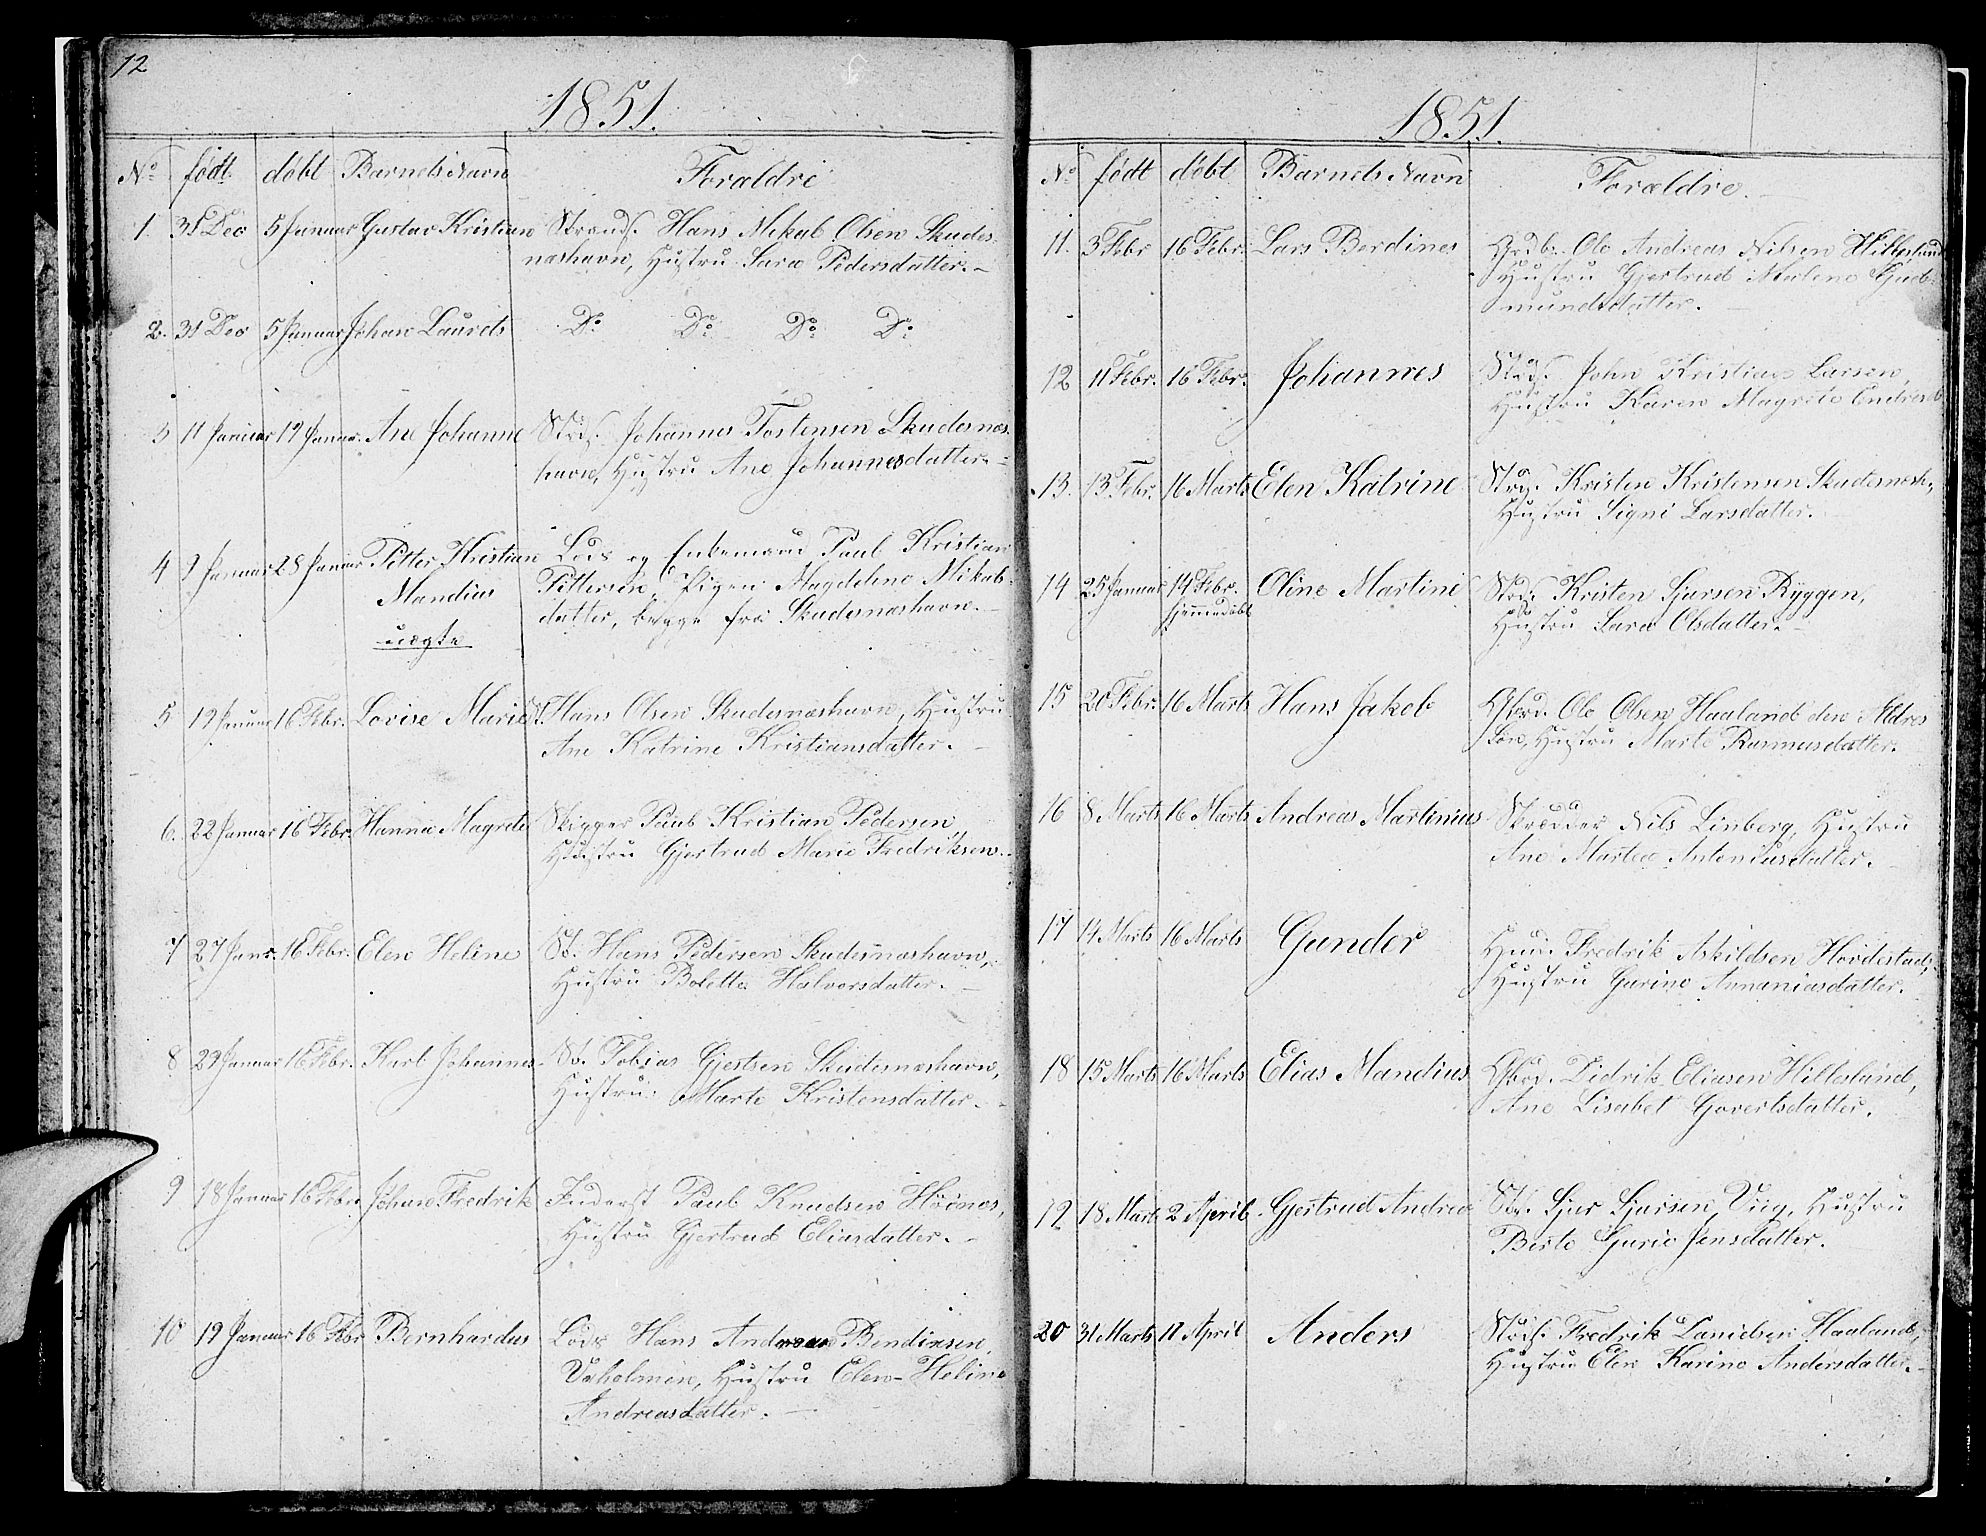 12
1851.
No født døbt Barnets Navn Foraldre
1. 31 Dec 5 Januar Gustav Kristian Strands. Hans Mikal Olsen Skudes-
næshavn, Hustru Sara Pedersdatter. -
2. 31 Dec 5 Januar Johan Laurets Do Do Do Do
3 11 Januar 19 Januar. Ane Johanne Strds. Johannes Tostensen Skudesnæs-
havn, Hustru Ane Johannesdatter. -
4 9 Januar 28 Januar Petter Kristian Lods og Enkemand Paul Kristian
Mandius Pettersen, Pigen Magdelene Mikal-
datter, begge fra Skudesnæshavn. -
uægte
5 19 Januar 16 Febr. Lovise Marie St. Hans Olsen Skudesnæshavn, Hustru
Ane Katrine Kristiansdatter. -
6. 22 Januar 16 Febr. Hanna Magrete Skipper Paul Kristian Pedersen,
Hustru Gjertrud Marie Fredriksen. -
7 27 Janr. 16 Febr. Elen Heline St. Hans Pedersen Skudesnæshavn,
Hustru Bolette Halvorsdatter. -
8 29 Januar 16 Febr. Karl Johannes St. Tobias Gjertsen Skudesnæshavn,
Hustru Marte Kristensdatter. -
9 18 Januar 16 Febr. Johan Fredrik Inderst Paul Knudsen Høines,
Hustru Gjertrud Eliasdatter. -
10 19 Januar 16 Febr Bernhardus Lods Hans Andreas Bendixsen,
Vaholmen, Hustru Elen Heline
Andreasdatter. -
1851
No født døbt Barnets Navn Forældre. -
11. 3 Febr 16 Febr. Lars Berdines Grdb. Ole Andreas Nilsen Hillesland
Hustru Gjertrud Malene Gud-
mundsdatter. -
12 11 Febr. 16 Febr. Johannes Strds. John Kristian Larsen,
Hustru Karen Magrete
13. 13 Febr. 16 Marts Elen Katrine Strds. Kristen Kristensen Skudesnæsh.,
Hustru Signi Larsdatter.
14 25 Januar 14 Febr. Oline Martine Strds. Kristen Sjursen Ryggen,
hjemmedøbt Hustru Sara Olsdatter. -
15 20 Febr. 16 Marts Hans Jakob Gbrd. Ole Olsen Haaland den Ældres
Søn, Hustru Marte Rasmusdatter. -
16 8 Marts 16 Marts Andreas Martinius Skrædder Nils Linberg, Hustru
Ane Martea Antoniusdatter. -
17 14 Marts 16 Marts Gunder Huu. Fredrik Askildsen Hovdestad,
Hustru Gurine Annaniasdatter.
18 15 Marts 16 Marts Elias Mandius Gbrd. Didrik Eliasen Hillesland,
Ane Lisabet Govertsdatter.
19 18 Mart 2 April Gjertrud Andrea Std. Sjur Sjursen Viig, Hustru
Birte Gurie Jensdatter.
20 31 Marts 11 April Anders Strds. Fredrik Danielsen Haaland,
Hustru Elen Karine Andersdatter. -